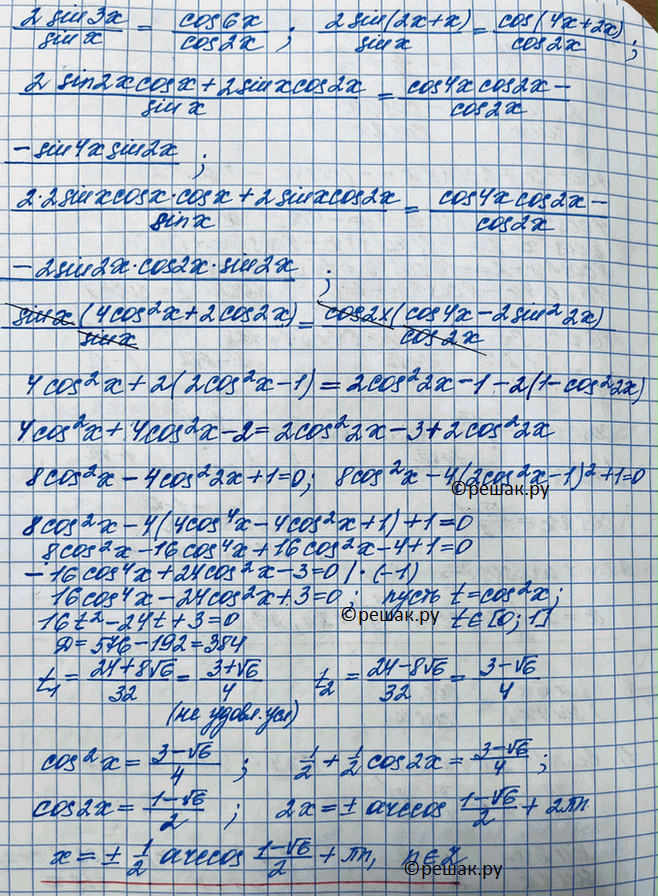 2 sin3x / sin x = cos6x / cos2x ; 2 sin(2x+x) / sin x = cos(4x+2x) / cos2x ;
2 sin2x cosx + 2 sinx cos2x / sin x = cos4x cos2x − / cos2x
− sin4x sin2x ;
2·2sinx cosx·cosx + 2 sinx cos2x / sinx = cos4x cos2x − / cos2x
− 2sin2x·cos2x·sin2x ;
sinx (4cos²x + 2cos2x) / sinx = cos2x (cos4x − 2sin²2x) / cos2x
4cos²x + 2(2cos²x−1) = 2cos²2x−1−2(1−cos²2x)
4cos²x + 4cos²x−2 = 2cos²2x−3+2cos²2x
8cos²x − 4cos²2x+1=0; 8cos²x−4(2cos²x−1)²+1=0
©решак.ру
8cos²x−4(4cos⁴x−4cos²x+1)+1=0
8cos²x−16cos⁴x+16cos²x−4+1=0
−16cos⁴x+24cos²x−3=0 |·(−1)
16cos⁴x−24cos²x+3=0; пусть t=cos²x;
16t²−24t+3=0 ©решак.ру t∈[0;1]
Д=576−192=384
t₁ = 24+8√6 / 32 = 3+√6 / 4 t₂ = 24−8√6 / 32 = 3−√6 / 4
(не удовл. усл)
cos²x = 3−√6 / 4 ; 1/2 + 1/2 cos2x = 3−√6 / 4 ;
cos2x = 1−√6 / 2 ; 2x = ± arccos 1−√6 / 2 + 2πn
x = ± 1/2 arccos 1−√6 / 2 + πn, n∈Z
©решак.ру